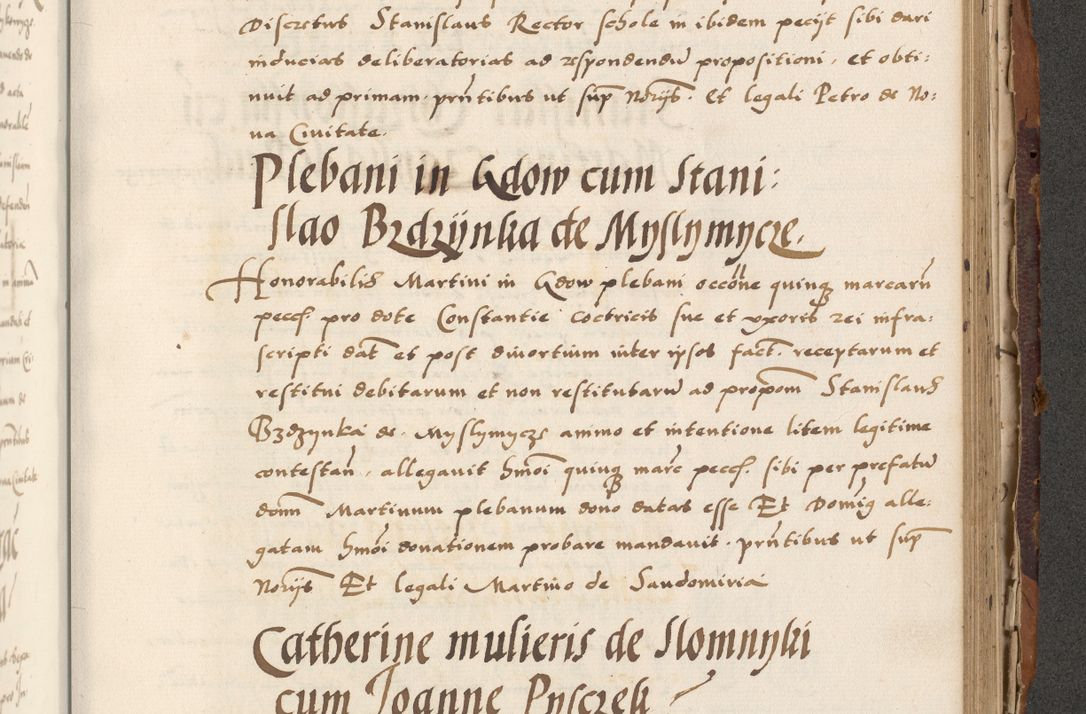 Discretus Stanislaus Rector schole in ibidem pecijt sibi dari
inducias deliberatorias ad respondendū propositioni, et obti:
nuit ad primam, pn̄tibus ut sup̄ Norijs. Et legali Petro de No:
va Civitate.
Plebani in Gdow cum Stani:
slao Brzdzÿnka de Myslymycze.
Honorabilis Martini in Gdow plebani occōne quinq marcarū
peccf. pro dote Constantie coctricis sue et uxoris rei infra:
scripti dat̄ et post divortium inter ipsos fact. receptarum et
restitui debitarum et non restitutarū ad propom̄ Stanislaus
Bzdzynka de Myslymycze animo et intentione litem legitime
contestan̄, allegavit hmōi quinq marc peccf. sibi per prefatū
dōm̄ Martinum plebanum dono datas esse Et Domīg alle:
gatam hmōi donationem probare mandavit. pn̄tibus ut sup̄
Norijs Et legali Martino de Sandomiria
Catherine mulieris de Slomnyki
cum Joanne Pysczek